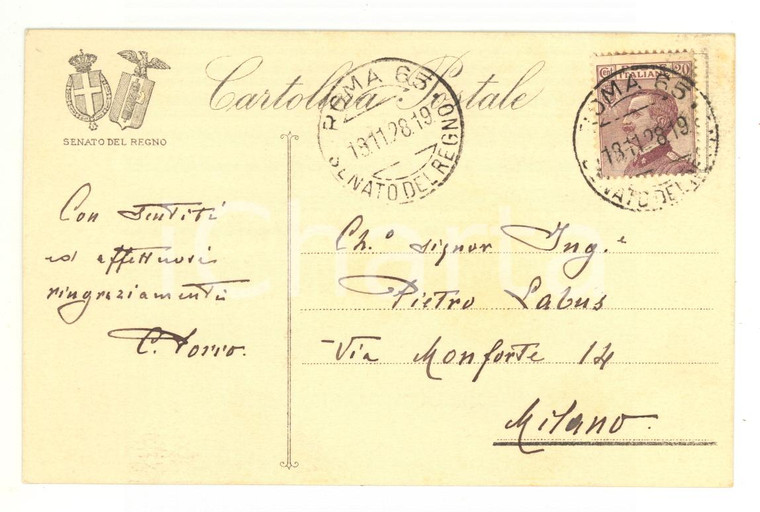 Cartolina Postale
SENATO DEL REGNO
ROMA 65.
18.11.28.19
SENATO DEL REGNO
ITALIANE
20
ROMA 65.
18.11.28.19
SENATO DEL RE
Con sentiti
ed affettuosi
ringraziamenti
Ch.º Signor Ing.e
Pietro Labus
Via Monforte 14
Milano.
iCharta